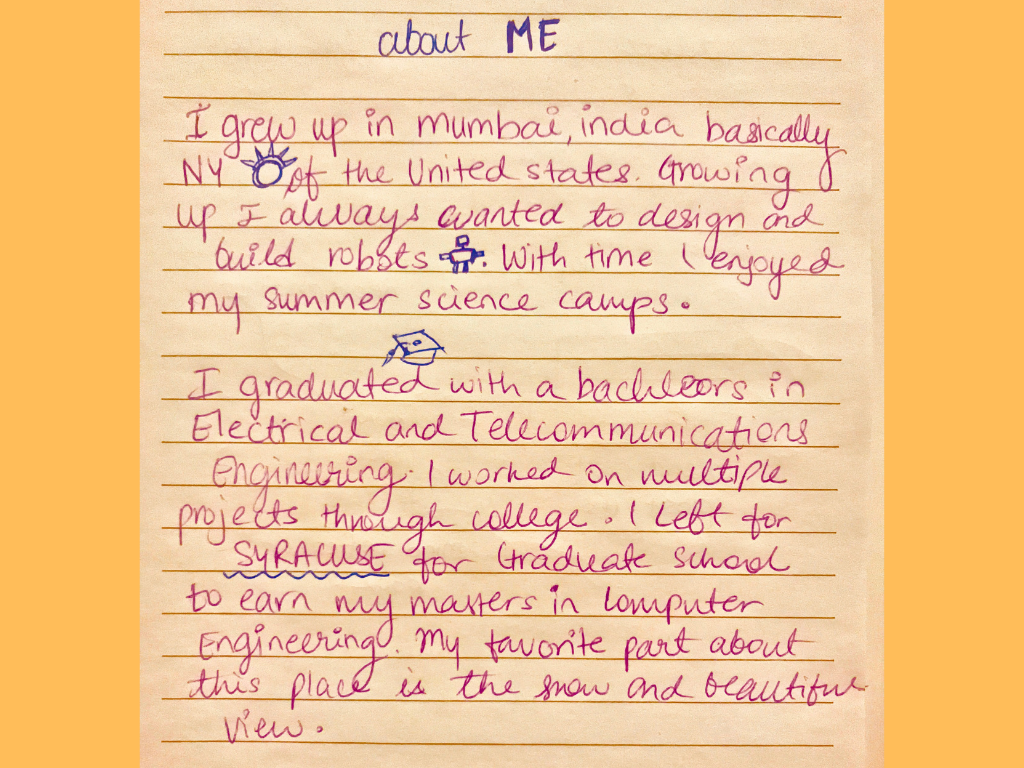 about ME
I grew up in mumbai, india basically
NY of the United states. Growing
up I always wanted to design and
build robots. With time I enjoyed
my summer science camps.
I graduated with a bachleors in
Electrical and Telecommunications
Engineering. I worked on multiple
projects through college. I left for
SYRACUSE for Graduate school
to earn my masters in Computer
Engineering. My favorite part about
this place is the snow and beautiful
view.